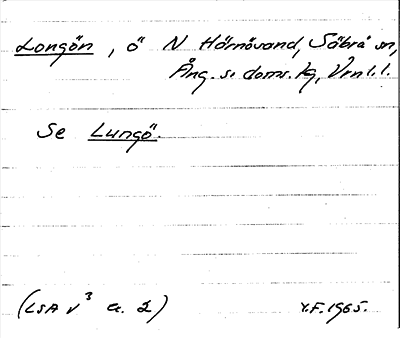 Longön, ö N Härnösand, Säbrå sn,
Ång. s. doms. lg, Vrn l.l.
Se Lungö.
(LSA V³ a. 2) Y.F. 1965.